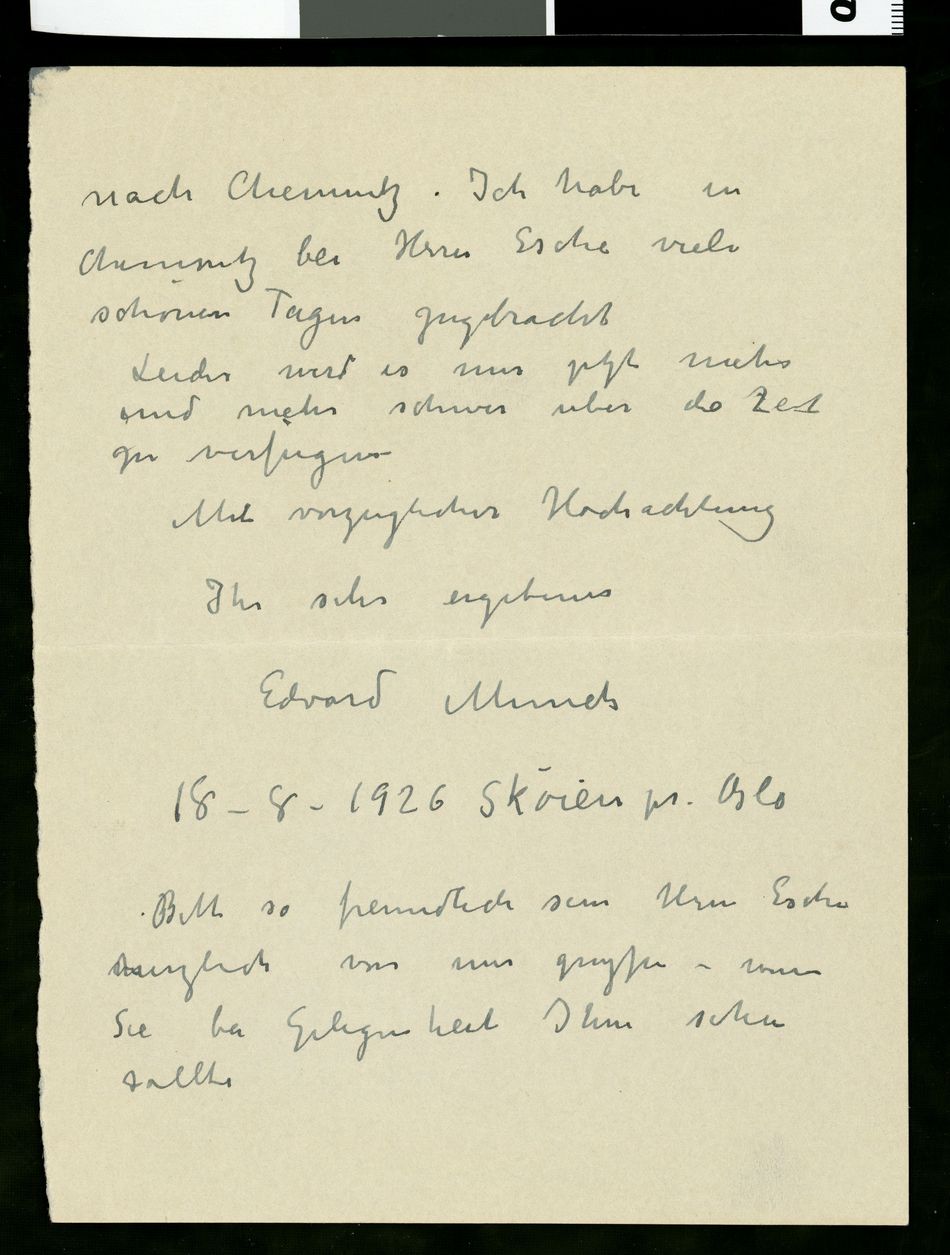 nach Chemnitz. Ich habe in
Chemnitz bei Herrn Esche viele
schönen Tagen zugebracht
Leider wird es mir jetzt mehr
und mehr schwer über die Zeit
zu verfügen
Mit vorzüglicher Hochachtung
Ihr sehr ergebener
Edvard Munch
18 – 8 – 1926 Sköien pr. Oslo
Bitte so freundlich sein Herrn Esche
herzlich von mir grüssen – wenn
Sie bei Gelegenheit Ihm sehen
sollte